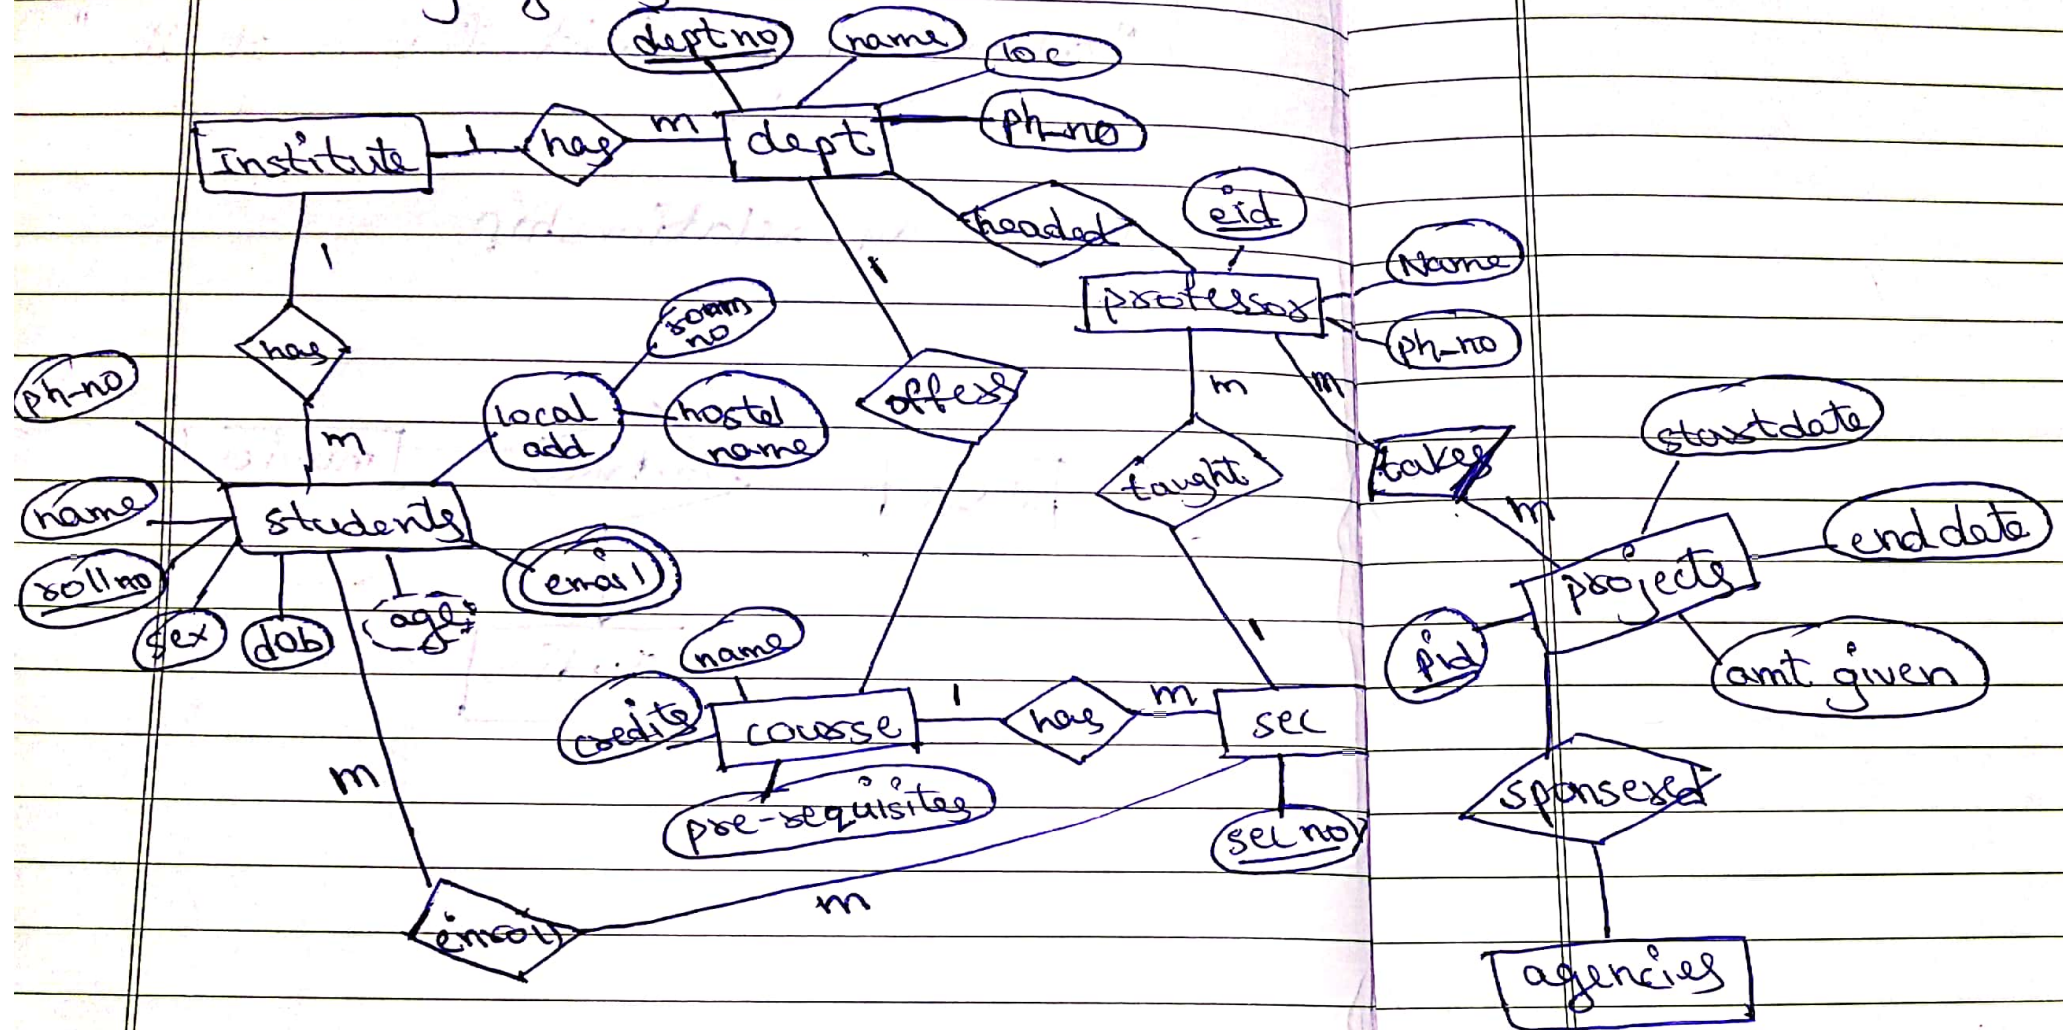 dept no
name
loc
ph-no
Institute
1
has
m
dept
headed
eid
professor
Name
ph-no
1
1
has
m
room
no
local
add
hostel
name
offers
m
m
taught
takes
m
startdate
end date
projects
pid
amt given
ph-no
name
rollno
sex
dob
age
students
email
name
credits
course
1
has
m
1
sec
pre-requisites
sec no
sponsered
agencies
m
enroll
m